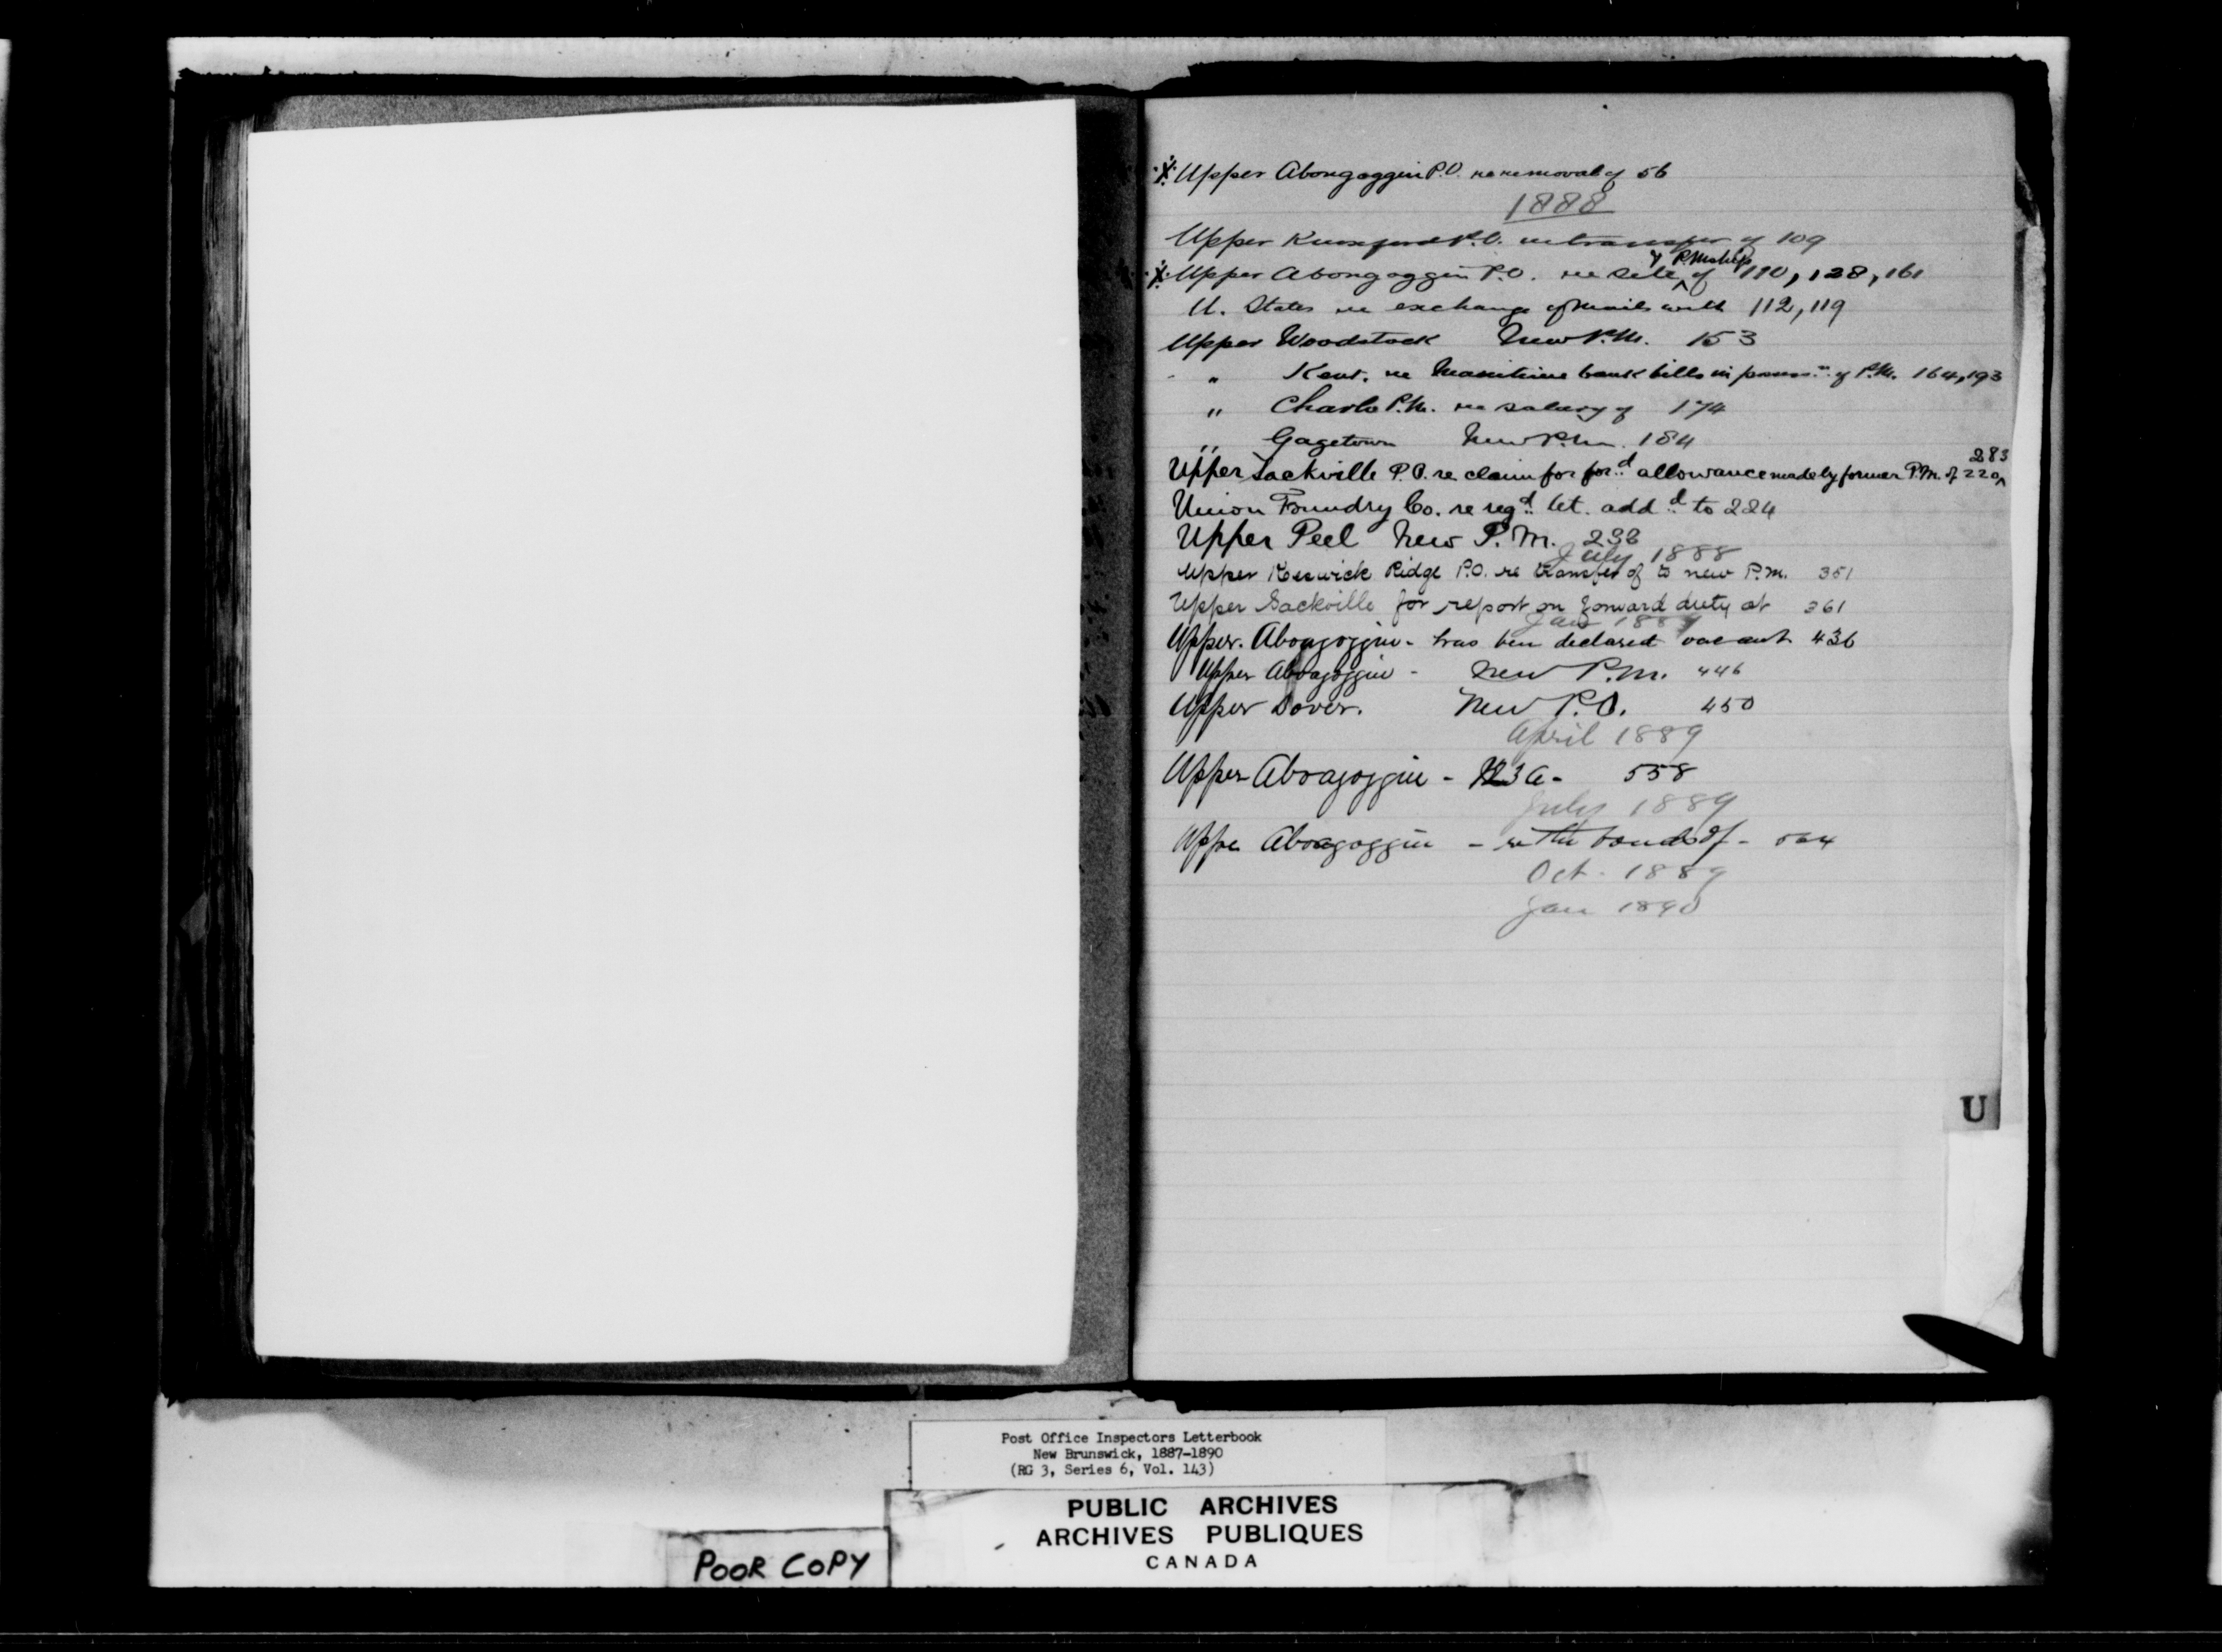 Upper Abougoggin P.O. re removal of 56
1888
Upper P.O. re transfer of 109
of P.Mship
Upper Abougoggin P.O. re of 110, 128, 161
U. States re exchange of mails with 112, 119
Upper Woodstock New P.M. 153
" Kent. re Maritime bank bills in possn. of P.M. 164, 193
" Charlo P.M. re salary of 174
" Gagetown New P.M. 184
283
Upper Sackville P.O. re claim for ford allowance made by former P.M. of 220
Union Foundry Co. re regd let. addd to 224
Upper Peel New P.M. 238
July 1888
Upper Keswick Ridge P.O. re transfer of to new P.M. 351
Upper Sackville for report on forward duty at 361
Jan 1889
Upper. Aboagoggin - has been declared vacant 436
Upper Aboagoggin - New P.M. 446
Upper Dover. New P.O. 450
April 1889
Upper Aboagoggin - 558
July 1889
Upper Aboagoggin - re the bonds of - 564
Oct. 1889
Jan 1890
U
Post Office Inspectors Letterbook
New Brunswick, 1887-1890
(RG 3, Series 6, Vol. 143)
PUBLIC ARCHIVES
ARCHIVES PUBLIQUES
CANADA
POOR COPY